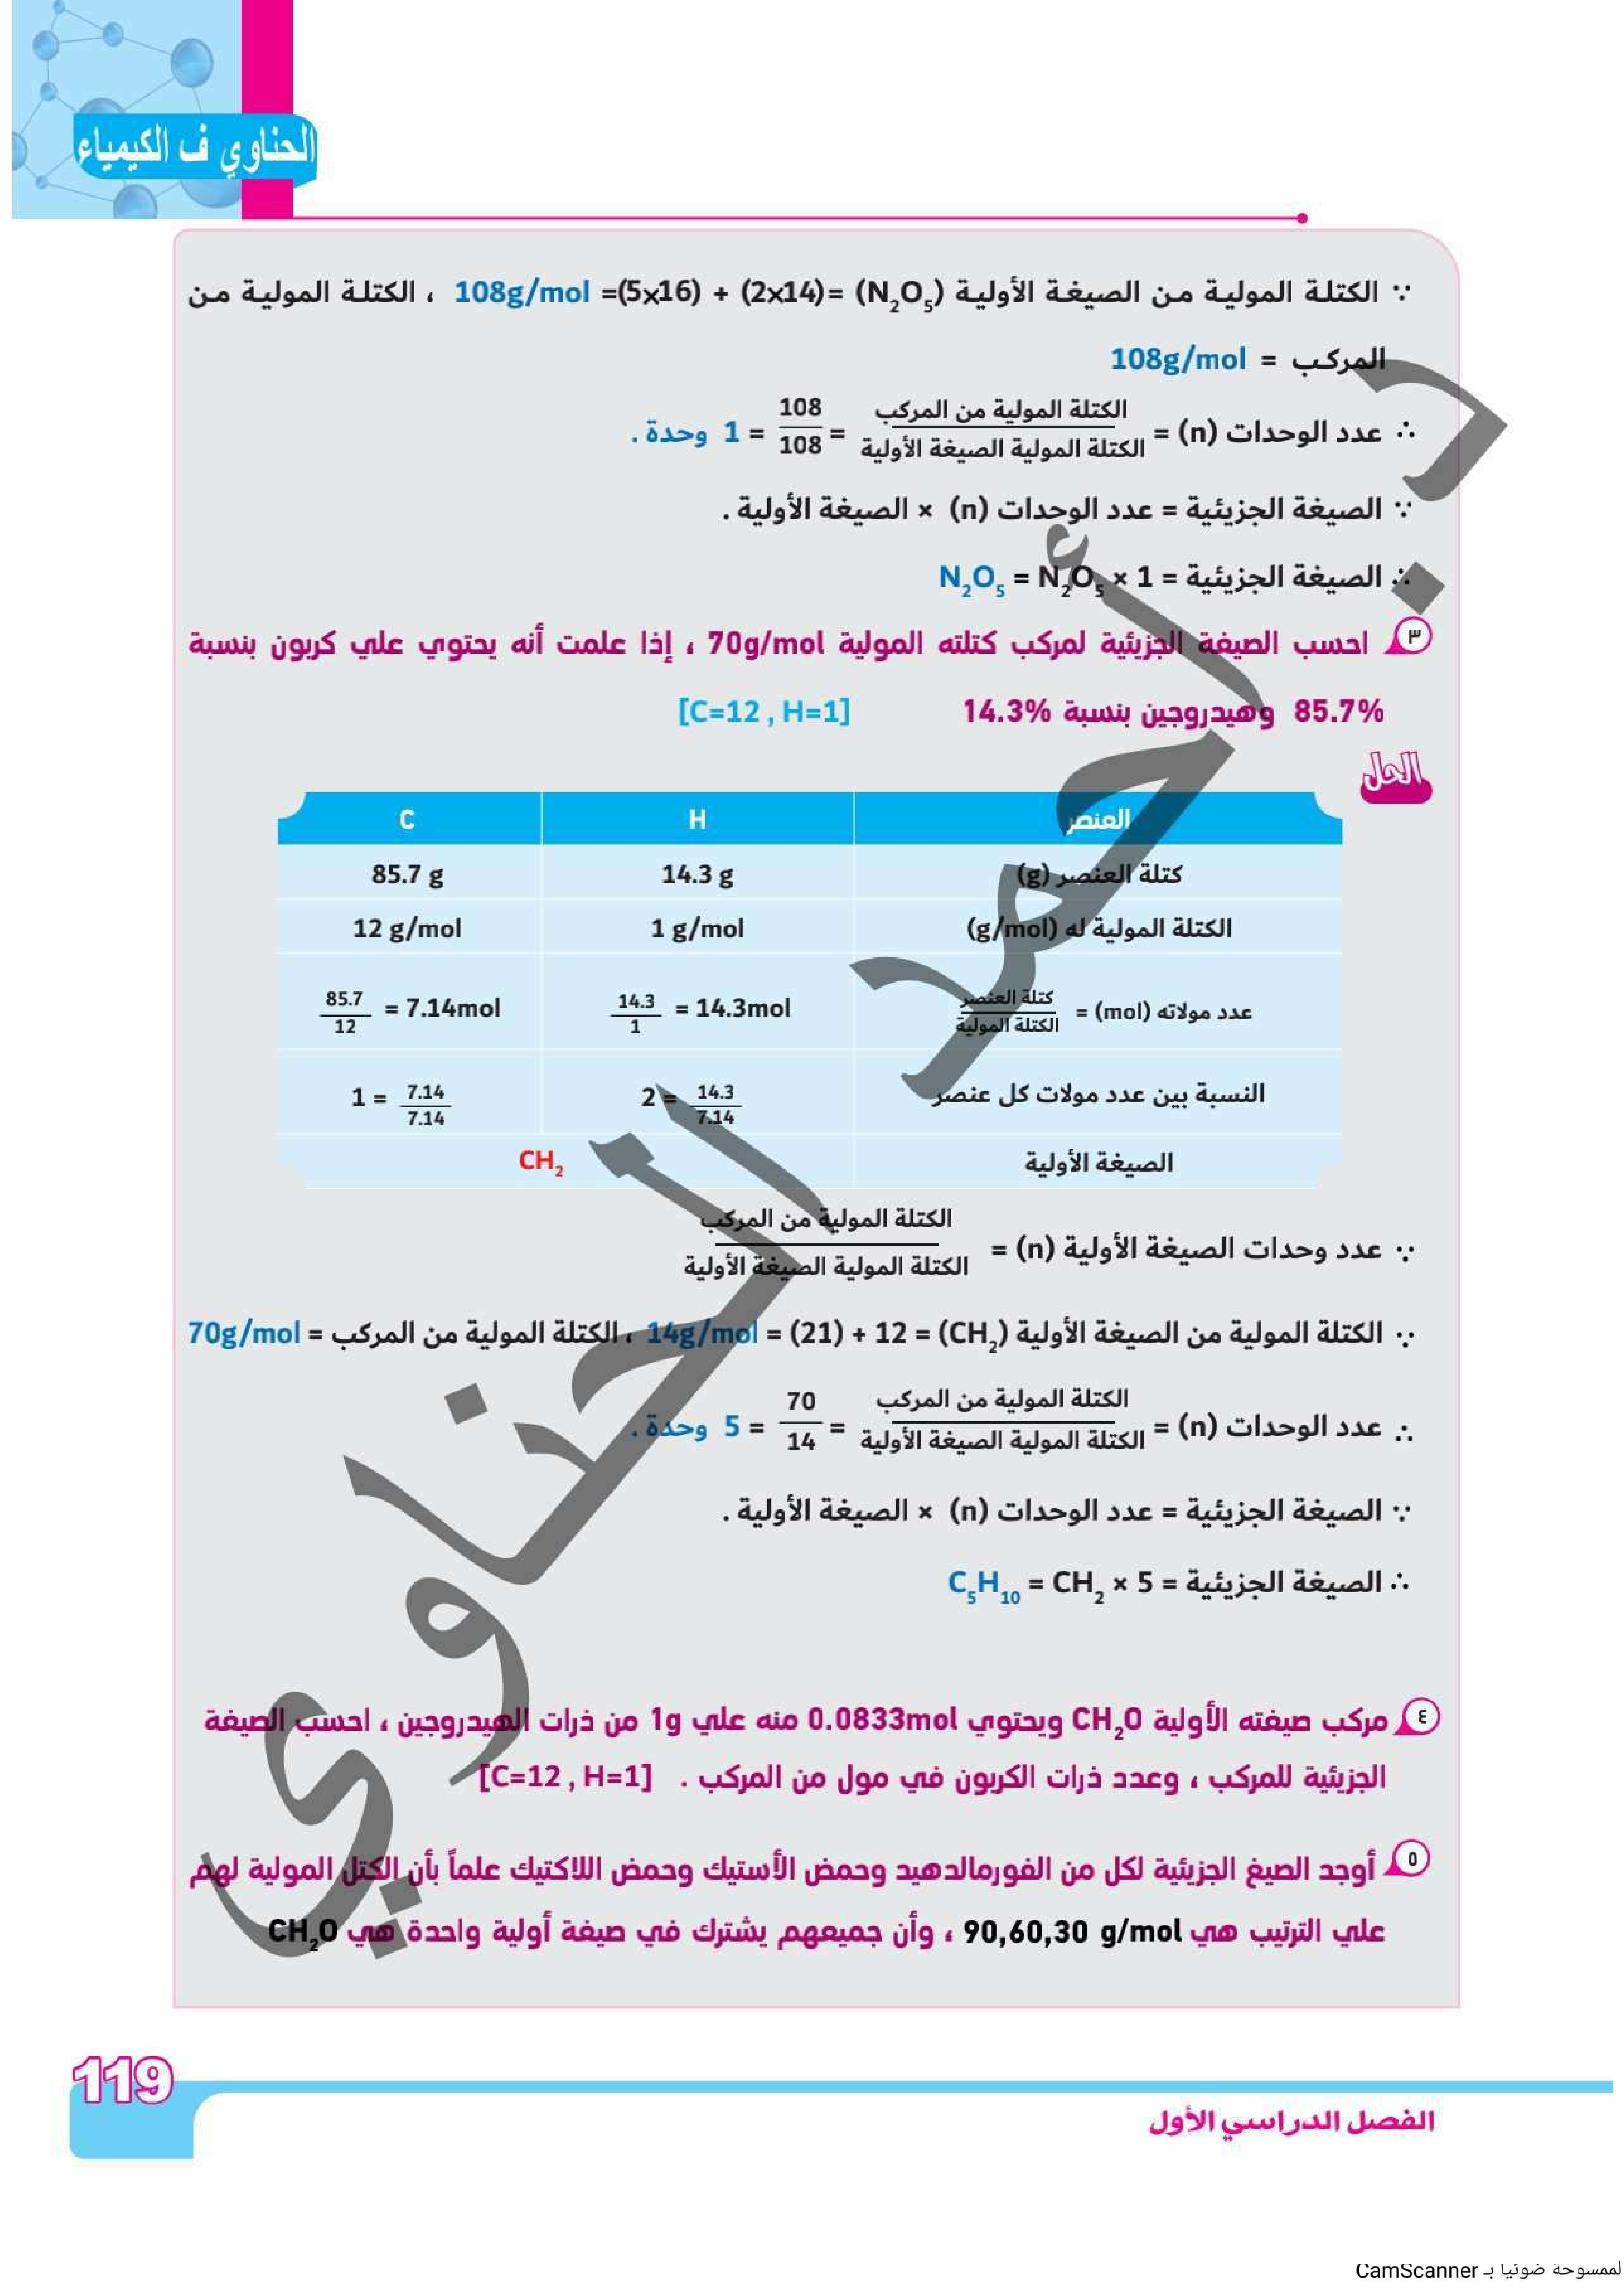 الحناوي ف الكيمياء
∵ الكتلة المولية من الصيغة الأولية (N₂O₅) =(2×14) + (5×16)= 108g/mol ، الكتلة المولية من
المركب = 108g/mol
∴ عدد الوحدات (n) = الكتلة المولية من المركب / الكتلة المولية الصيغة الأولية = 108 / 108 = 1 وحدة .
∵ الصيغة الجزيئية = عدد الوحدات (n) × الصيغة الأولية .
∴ الصيغة الجزيئية = 1 × N₂O₅ = N₂O₅
٣ احسب الصيغة الجزيئية لمركب كتلته المولية 70g/mol ، إذا علمت أنه يحتوي علي كربون بنسبة
85.7% وهيدروجين بنسبة 14.3% [C=12 , H=1]
الحل
العنصر H C
كتلة العنصر (g) 14.3 g 85.7 g
الكتلة المولية له (g/mol) 1 g/mol 12 g/mol
عدد مولاته (mol) = كتلة العنصر / الكتلة المولية 14.3 / 1 = 14.3mol 85.7 / 12 = 7.14mol
النسبة بين عدد مولات كل عنصر 2 = 14.3 / 7.14 1 = 7.14 / 7.14
الصيغة الأولية CH₂
∵ عدد وحدات الصيغة الأولية (n) = الكتلة المولية من المركب / الكتلة المولية الصيغة الأولية
∵ الكتلة المولية من الصيغة الأولية (CH₂) = 12 + (21) = 14g/mol ، الكتلة المولية من المركب = 70g/mol
∴ عدد الوحدات (n) = الكتلة المولية من المركب / الكتلة المولية الصيغة الأولية = 70 / 14 = 5 وحدة .
∵ الصيغة الجزيئية = عدد الوحدات (n) × الصيغة الأولية .
∴ الصيغة الجزيئية = 5 × CH₂ = C₅H₁₀
٤ مركب صيغته الأولية CH₂O ويحتوي 0.0833mol منه علي 1g من ذرات الهيدروجين ، احسب الصيغة
الجزيئية للمركب ، وعدد ذرات الكربون في مول من المركب . [C=12 , H=1]
٥ أوجد الصيغ الجزيئية لكل من الفورمالدهيد وحمض الأستيك وحمض اللاكتيك علماً بأن الكتل المولية لهم
علي الترتيب هي 90,60,30 g/mol ، وأن جميعهم يشترك في صيغة أولية واحدة هي CH₂O
د. أحمد الحناوي
119
الفصل الدراسي الأول
لممسوحة ضوئيا بـ CamScanner